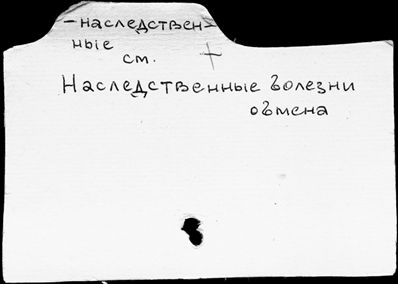 -наследствен-
ные
см. +
Наследственные болезни
обмена